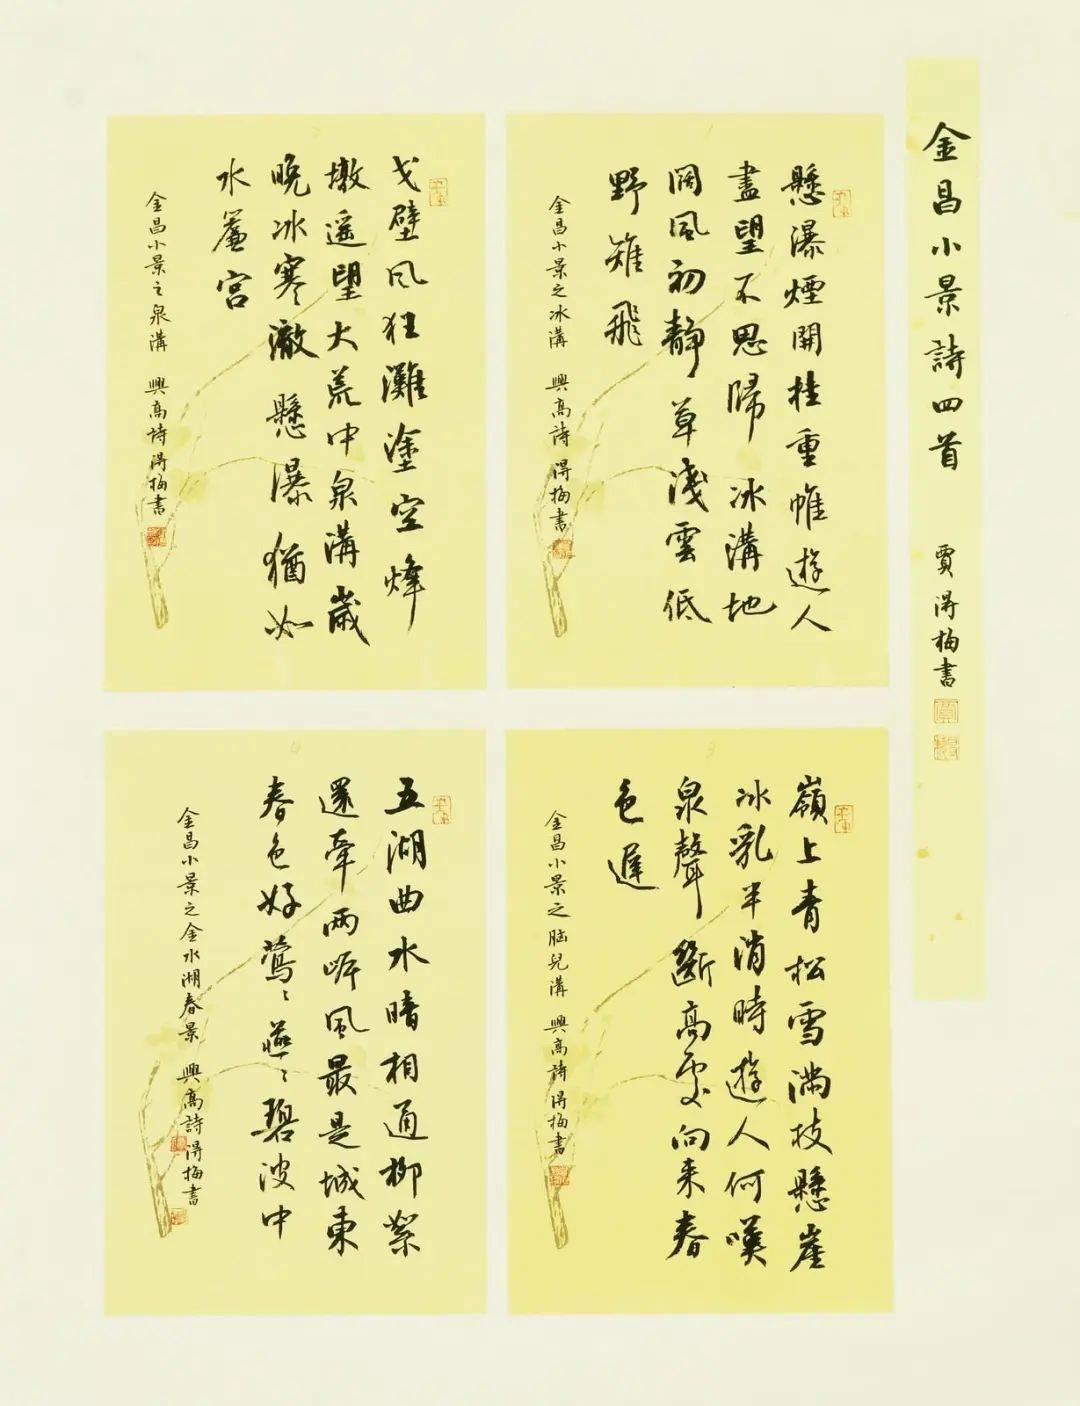 金昌小景詩四首 賈得梅書
懸瀑煙開挂重帷遊人
盡望不思歸冰溝地
闊風初靜草淺雲低
野雉飛
金昌小景之冰溝 興高詩 得梅書
戈壁風狂灘塗空烽
墩遥望大荒中泉溝歲
晚冰寒澈懸瀑猶如
水簾宮
金昌小景之泉溝 興高詩 得梅書
嶺上青松雪滿枝懸崖
冰乳半消時遊人何嘆
泉聲斷高處向來春
色遲
金昌小景之脑兒溝 興高詩 得梅書
五湖曲水暗相通柳絮
還牽兩岸風最是城東
春色好鶯〻燕〻碧波中
金昌小景之金水湖春景 興高詩 得梅書